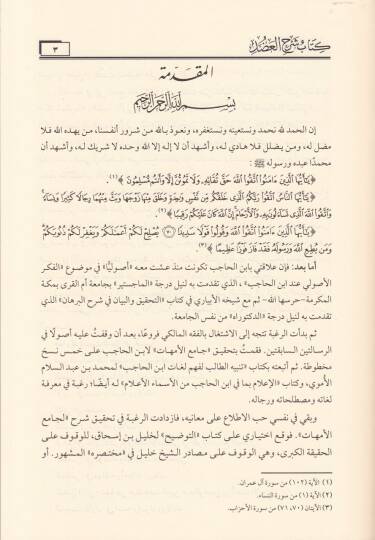 كتاب شرح العضد
٣
المقدمة
بسم الله الرحمن الرحيم
إن الحمد لله نحمد ونستعينه ونستغفره، ونعوذ بالله من شرور أنفسنا، من يهده الله فلا
مضل له، ومن يضلل فلا هادي له، وأشهد أن لا إله إلا الله وحده لا شريك له، وأشهد أن
محمدًا عبده ورسوله ﷺ:
﴿يَا أَيُّهَا الَّذِينَ ءَامَنُوا اتَّقُوا اللَّهَ حَقَّ تُقَائِهِ، وَلَا تَمُوتُنَّ إِلَّا وَأَنتُم مُّسْلِمُونَ﴾(١).
﴿يَا أَيُّهَا النَّاسُ اتَّقُوا رَبَّكُمُ الَّذِي خَلَقَكُم مِّن نَّفْسٍ وَحِدَةٍ وَخَلَقَ مِنْهَا زَوْجَهَا وَبَثَّ مِنْهُمَا رِجَالًا كَثِيرًا وَنِسَاءً
وَاتَّقُوا اللَّهَ الَّذِي تَسَاءَلُونَ بِهِ، وَالْأَرْحَامَ إِنَّ اللَّهَ كَانَ عَلَيْكُمْ رَقِيبًا﴾(٢).
﴿يَا أَيُّهَا الَّذِينَ ءَامَنُوا اتَّقُوا اللَّهَ وَقُولُوا قَوْلًا سَدِيدًا (٧٠) يُصْلِحْ لَكُمْ أَعْمَالَكُمْ وَيَغْفِرْ لَكُمْ ذُنُوبَكُمْ
وَمَن يُطِعِ اللَّهَ وَرَسُولَهُ فَقَدْ فَازَ فَوْزًا عَظِيمًا﴾(٣).
أما بعد: فإن علاقتي بابن الحاجب تكونت منذ عشت معه «أصوليًّا» في موضوع «الفكر
الأصولي عند ابن الحاجب»، الذي تقدمت به لنيل درجة «الماجستير» بجامعة أم القرى بمكة
المكرمة-حرسها الله- ثم مع شيخه الأبياري في كتاب «التحقيق والبيان في شرح البرهان» الذي
تقدمت به لنيل درجة «الدكتوراه» من نفس الجامعة.
ثم بدأت الرغبة تتجه إلى الاشتغال بالفقه المالكي فروعًا، بعد أن وقفتُ عليه أصولًا في
الرسالتين السابقتين. فقمتُ بتحقيق «جامع الأمهات» لابن الحاجب على خمس نسخ
مخطوطة. ثم أتبعته بكتاب «تنبيه الطالب لفهم لغات ابن الحاجب» لمحمد بن عبد السلام
الأموي، وكتاب «الإعلام بما في ابن الحاجب من الأسماء الأعلام» له أيضًا؛ رغبة في معرفة
لغاته ومصطلحاته ورجاله.
وبقي في نفسي حب الاطلاع على معانيه، فازدادت الرغبة في تحقيق شرح «لجامع
الأمهات». فوقع اختياري على كتاب «التوضيح» لخليل بن إسحاق، للوقوف على
الحقيقة الكبرى، وهي الوقوف على مصادر الشيخ خليل في «مختصره» المشهور. أو
(١) الآية (١٠٢) من سورة آل عمران.
(٢) الآية (١) من سورة النساء.
(٣) الآيتان (٧٠، ٧١) من سورة الأحزاب.